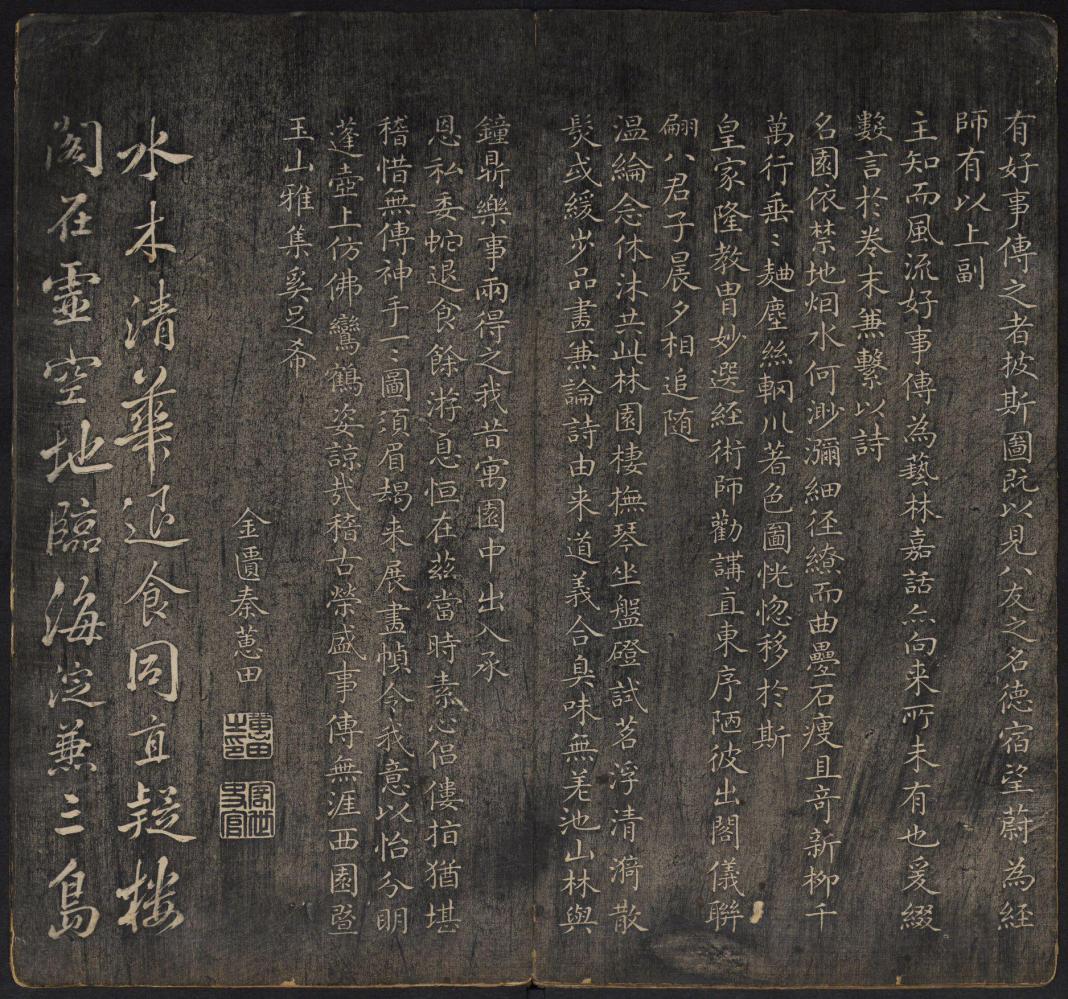 有好事傳之者披斯圖既以見八友之名德宿望蔚為經
師有以上副
主知而風流好事傳為藝林嘉話亦向来所未有也爰綴
數言於卷末兼繫以詩
名園依禁地烟水何渺瀰細徑繚而曲疊石瘦且奇新柳千
萬行垂〻麯塵絲輞川著色圖恍惚移於斯
皇家隆教胄妙選経術師勸講直東序陋彼出閣儀聯
翩八君子晨夕相追随
溫綸念休沐共此林園棲撫琴坐盤磴試茗浮清漪散
髮或緩步品畫兼論詩由来道義合臭味無差池山林與
鐘鼎樂事兩得之我昔寓園中出入承
恩私委蛇退食餘游息恒在茲當時素心侶僂指猶堪
稽惜無傳神手一〻圖須眉朅来展畫幀令我意以怡分明
蓬壺上仿佛鸞鶴姿諒哉稽古榮盛事傳無涯西園暨
玉山雅集奚足希
金匱秦蕙田
蕙田之印
水木清華退食同直疑樓
閣在靈空地臨海淀兼三島